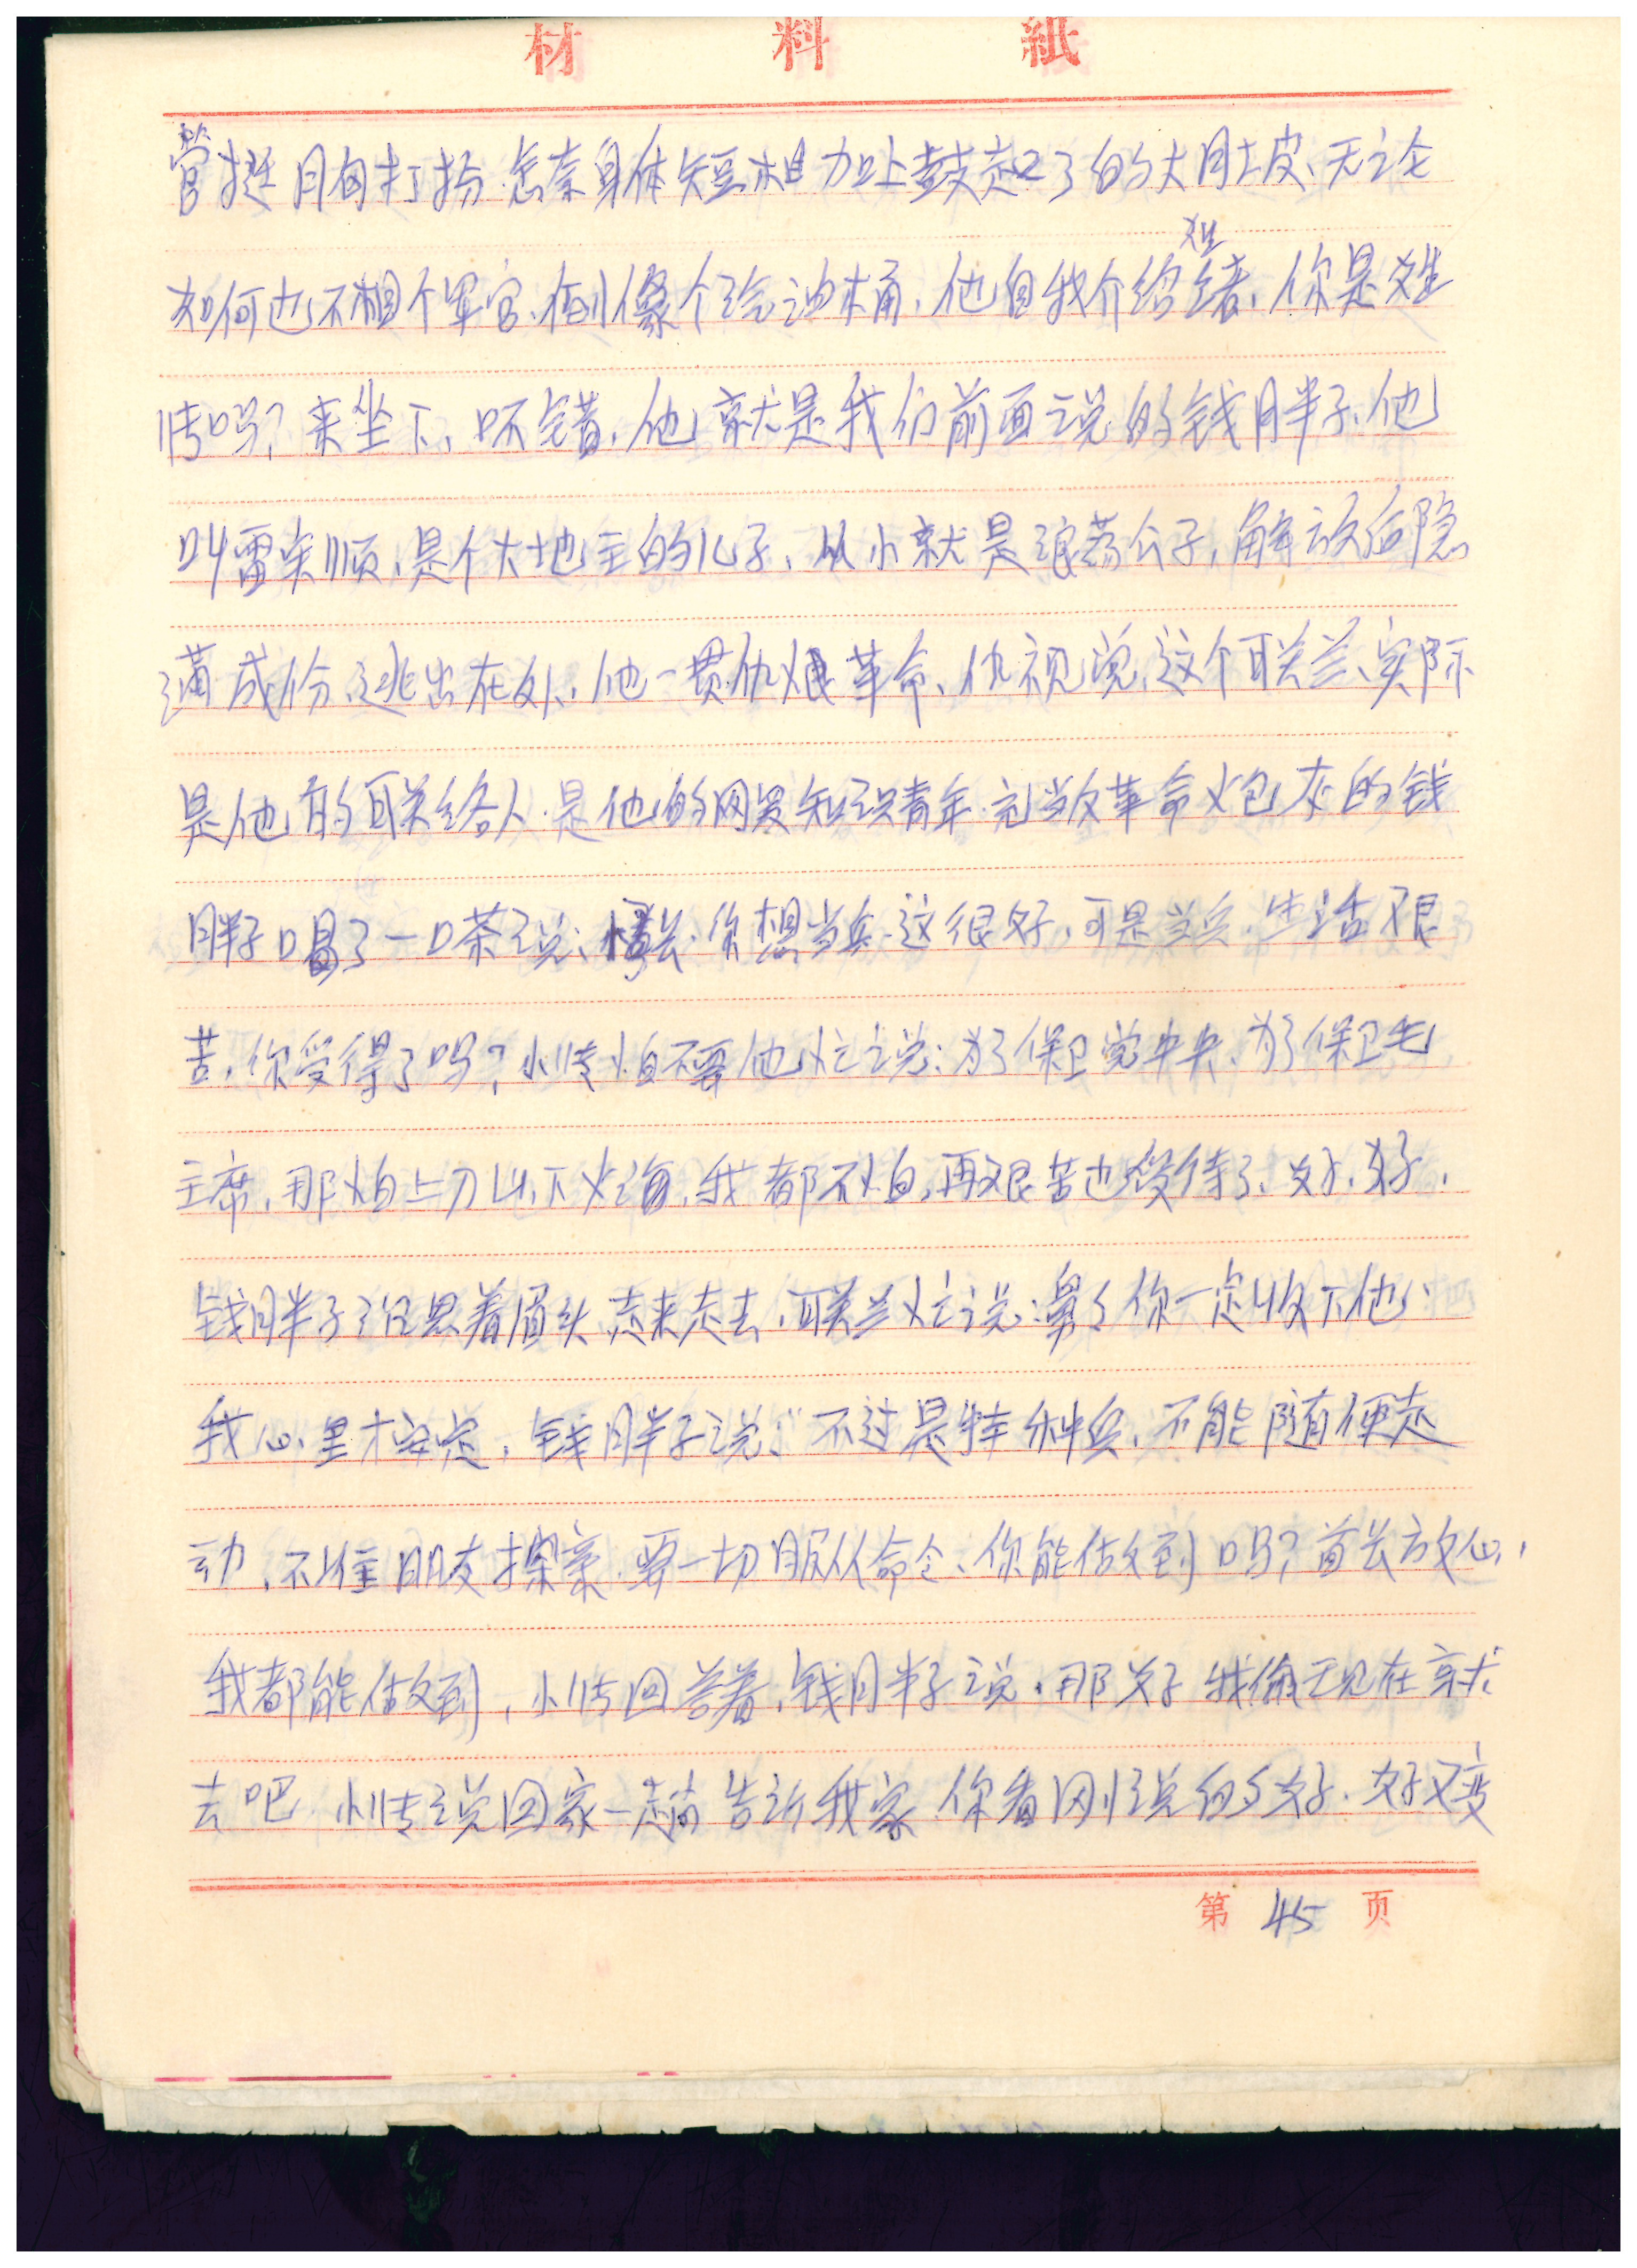 材料紙
管挺胸打扮.怎奈身体短粗加上鼓起了的大肚皮、无论
如何也不相个军官.倒像个汽油桶.他自我介绍着.你是姓
传吗?来坐下、不错.他就是我们前面说的钱胖子、他
叫雷实顺.是个大地主的儿子、从小就是浪荡公子.解放后隐
满成份.逃出在外.他一贯仇恨革命、仇视党、这个联兰、实际
是他的联络人.是他的网罗知识青年.充当反革命炮灰的钱
胖子喝了一口茶说:你想当兵.这很好.可是当兵.生活艰
苦.你受得了吗?小传怕不要他忙说:为了保卫党中央、为了保卫毛
主席.那怕上刀山.下火海.我都不怕.再艰苦也受得了、好.好.
钱胖子沉思着眉头.走来走去.联兰忙说:舅舅你一定收下他
我心里才安定.钱胖子说:"不过是特种兵、不能随便走
动、不准朋友探亲.要一切服从命令、你能做到吗?首长放心.
我都能做到,小传回答着.钱胖子说.那好我俩现在就
去吧.小传说回家一趟告诉我家.你看刚说的多好.好又变
第 45 页